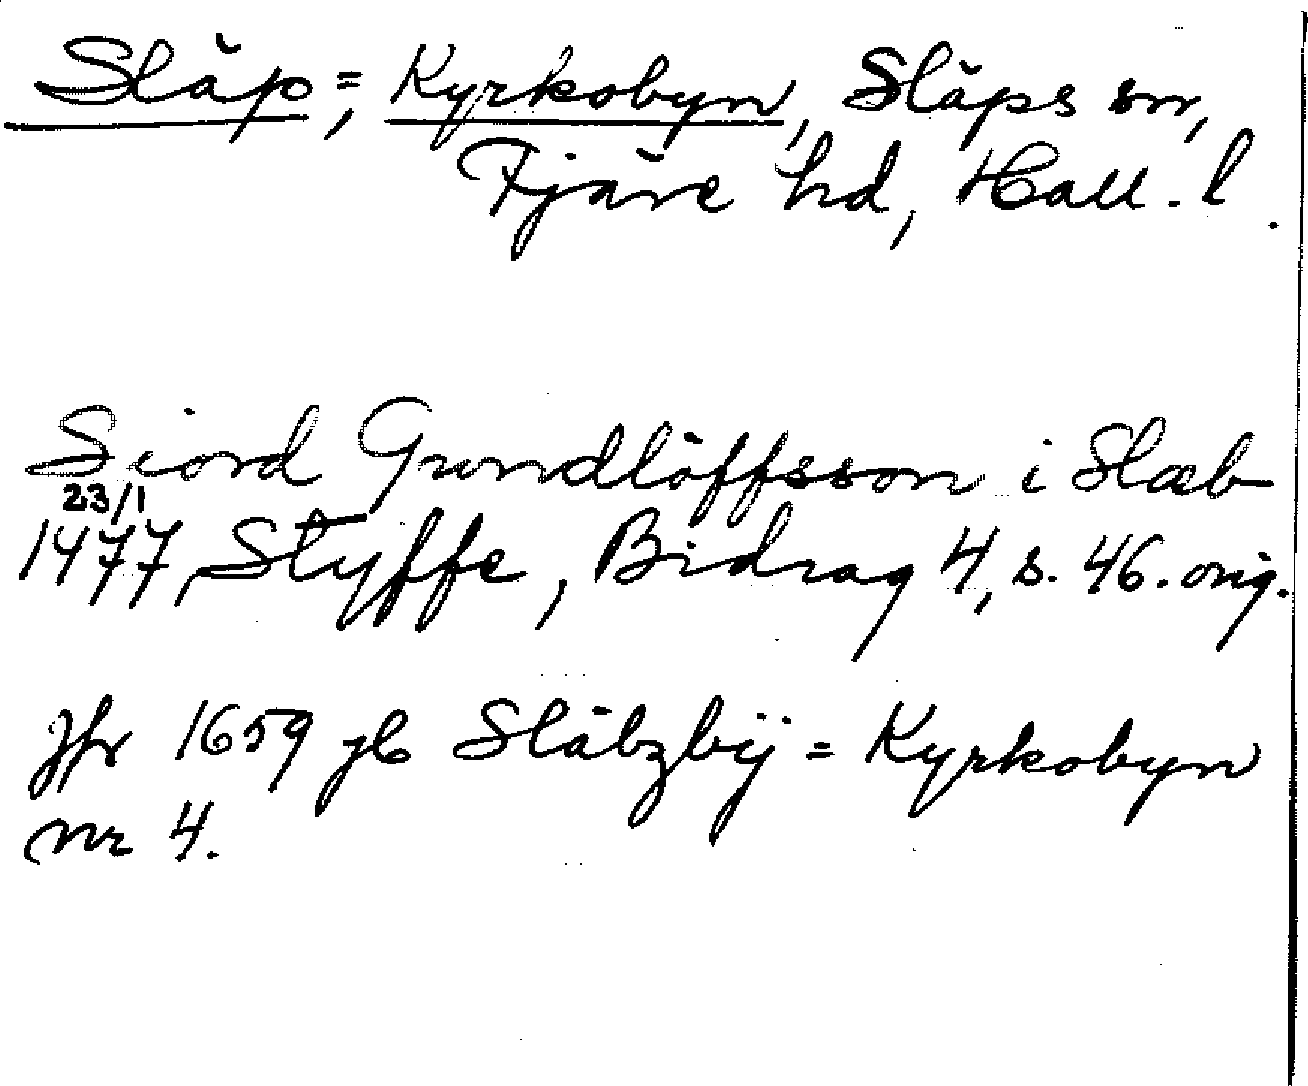 Släp =, Kyrkobyn, Släps sn,
Fjäre hd, Hall. l.
Siord Grundlöffsson i Slæb
23/1
1477, Styffe, Bidrag 4, s. 46. orig.
Jfr 1659 jb Släbzbÿ = Kyrkobyn
nr 4.